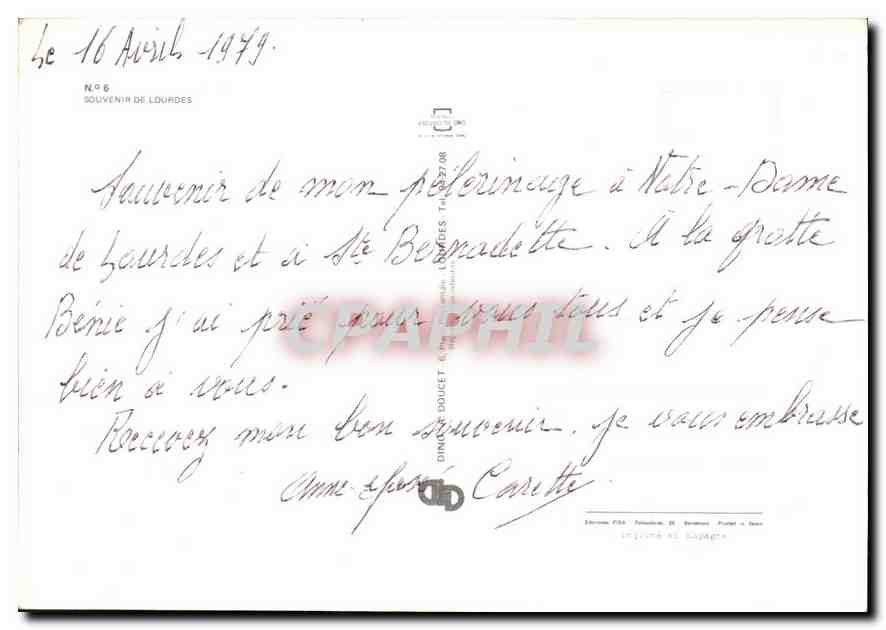 Le 16 Avril 1979.
N.º 6
SOUVENIR DE LOURDES
Souvenir de mon pélerinage à Notre-Dame
de Lourdes et à Ste Bernadette. A la grotte
Bénie j'ai prié pour vous tous et je pense
bien à vous.
Recevez mon bon souvenir. je vous embrasse
Anne-José Carette
DINO DOUCET - 6, LOURDES - Tél. 27 08
CPAPHIL
Ediciones FISA Barcelona Printed in Spain
Imprimé en Espagne